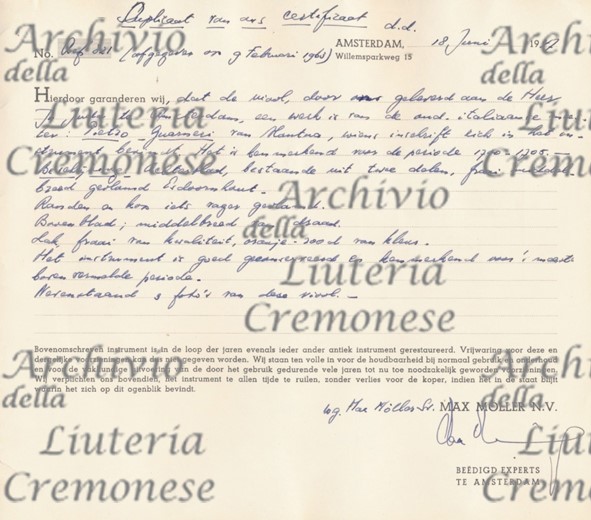 Duplicaat van ons certificaat d.d.
AMSTERDAM, 18 Juni 19
No. (afgegeven op 9 Februari 1963) Willemsparkweg 15
Hierdoor garanderen wij, dat de viool, door ons geleverd aan de Heer
te Amsterdam, een werk is van de oud. italiaanse
ter: Pietro Guarneri van Mantua, wiens inschrift zich in het in-
strument bevindt. Het is kenmerkend voor de periode 1700-1705.
bestaande uit twee delen, fraai
breed gevlamd Esdoornhout.
Randen en iets
Bovenblad; middelbreed van draad.
Lak, fraai van kwaliteit, oranje-rood van kleur.
Het instrument is goed geconserveerd en kenmerkend voor 's meesters
boven vermelde periode.
Nevenstaand 3 foto's van deze viool.
Bovenomschreven instrument is in de loop der jaren evenals ieder ander antiek instrument gerestaureerd. Vrijwaring voor deze en
dergelijke voorzieningen kan dus niet gegeven worden. Wij staan ten volle in voor de houdbaarheid bij normaal gebruik en onderhoud
en voor de vakkundige uitvoering van de door het gebruik gedurende vele jaren tot nu toe noodzakelijk geworden voorzieningen.
Wij verplichten ons bovendien, het instrument te allen tijde te ruilen, zonder verlies voor de koper, indien het in de staat blijft
waarin het zich op dit ogenblik bevindt.
wg. Max Möller Sr. MAX MÖLLER N.V.
BEËDIGD EXPERTS
TE AMSTERDAM
Archivio
della
Liuteria
Cremonese
Archivio
della
Liuteria
Cremonese
Archivio
della
Liuteria
Cremonese
Archivio
della
Liuteria
Cremonese